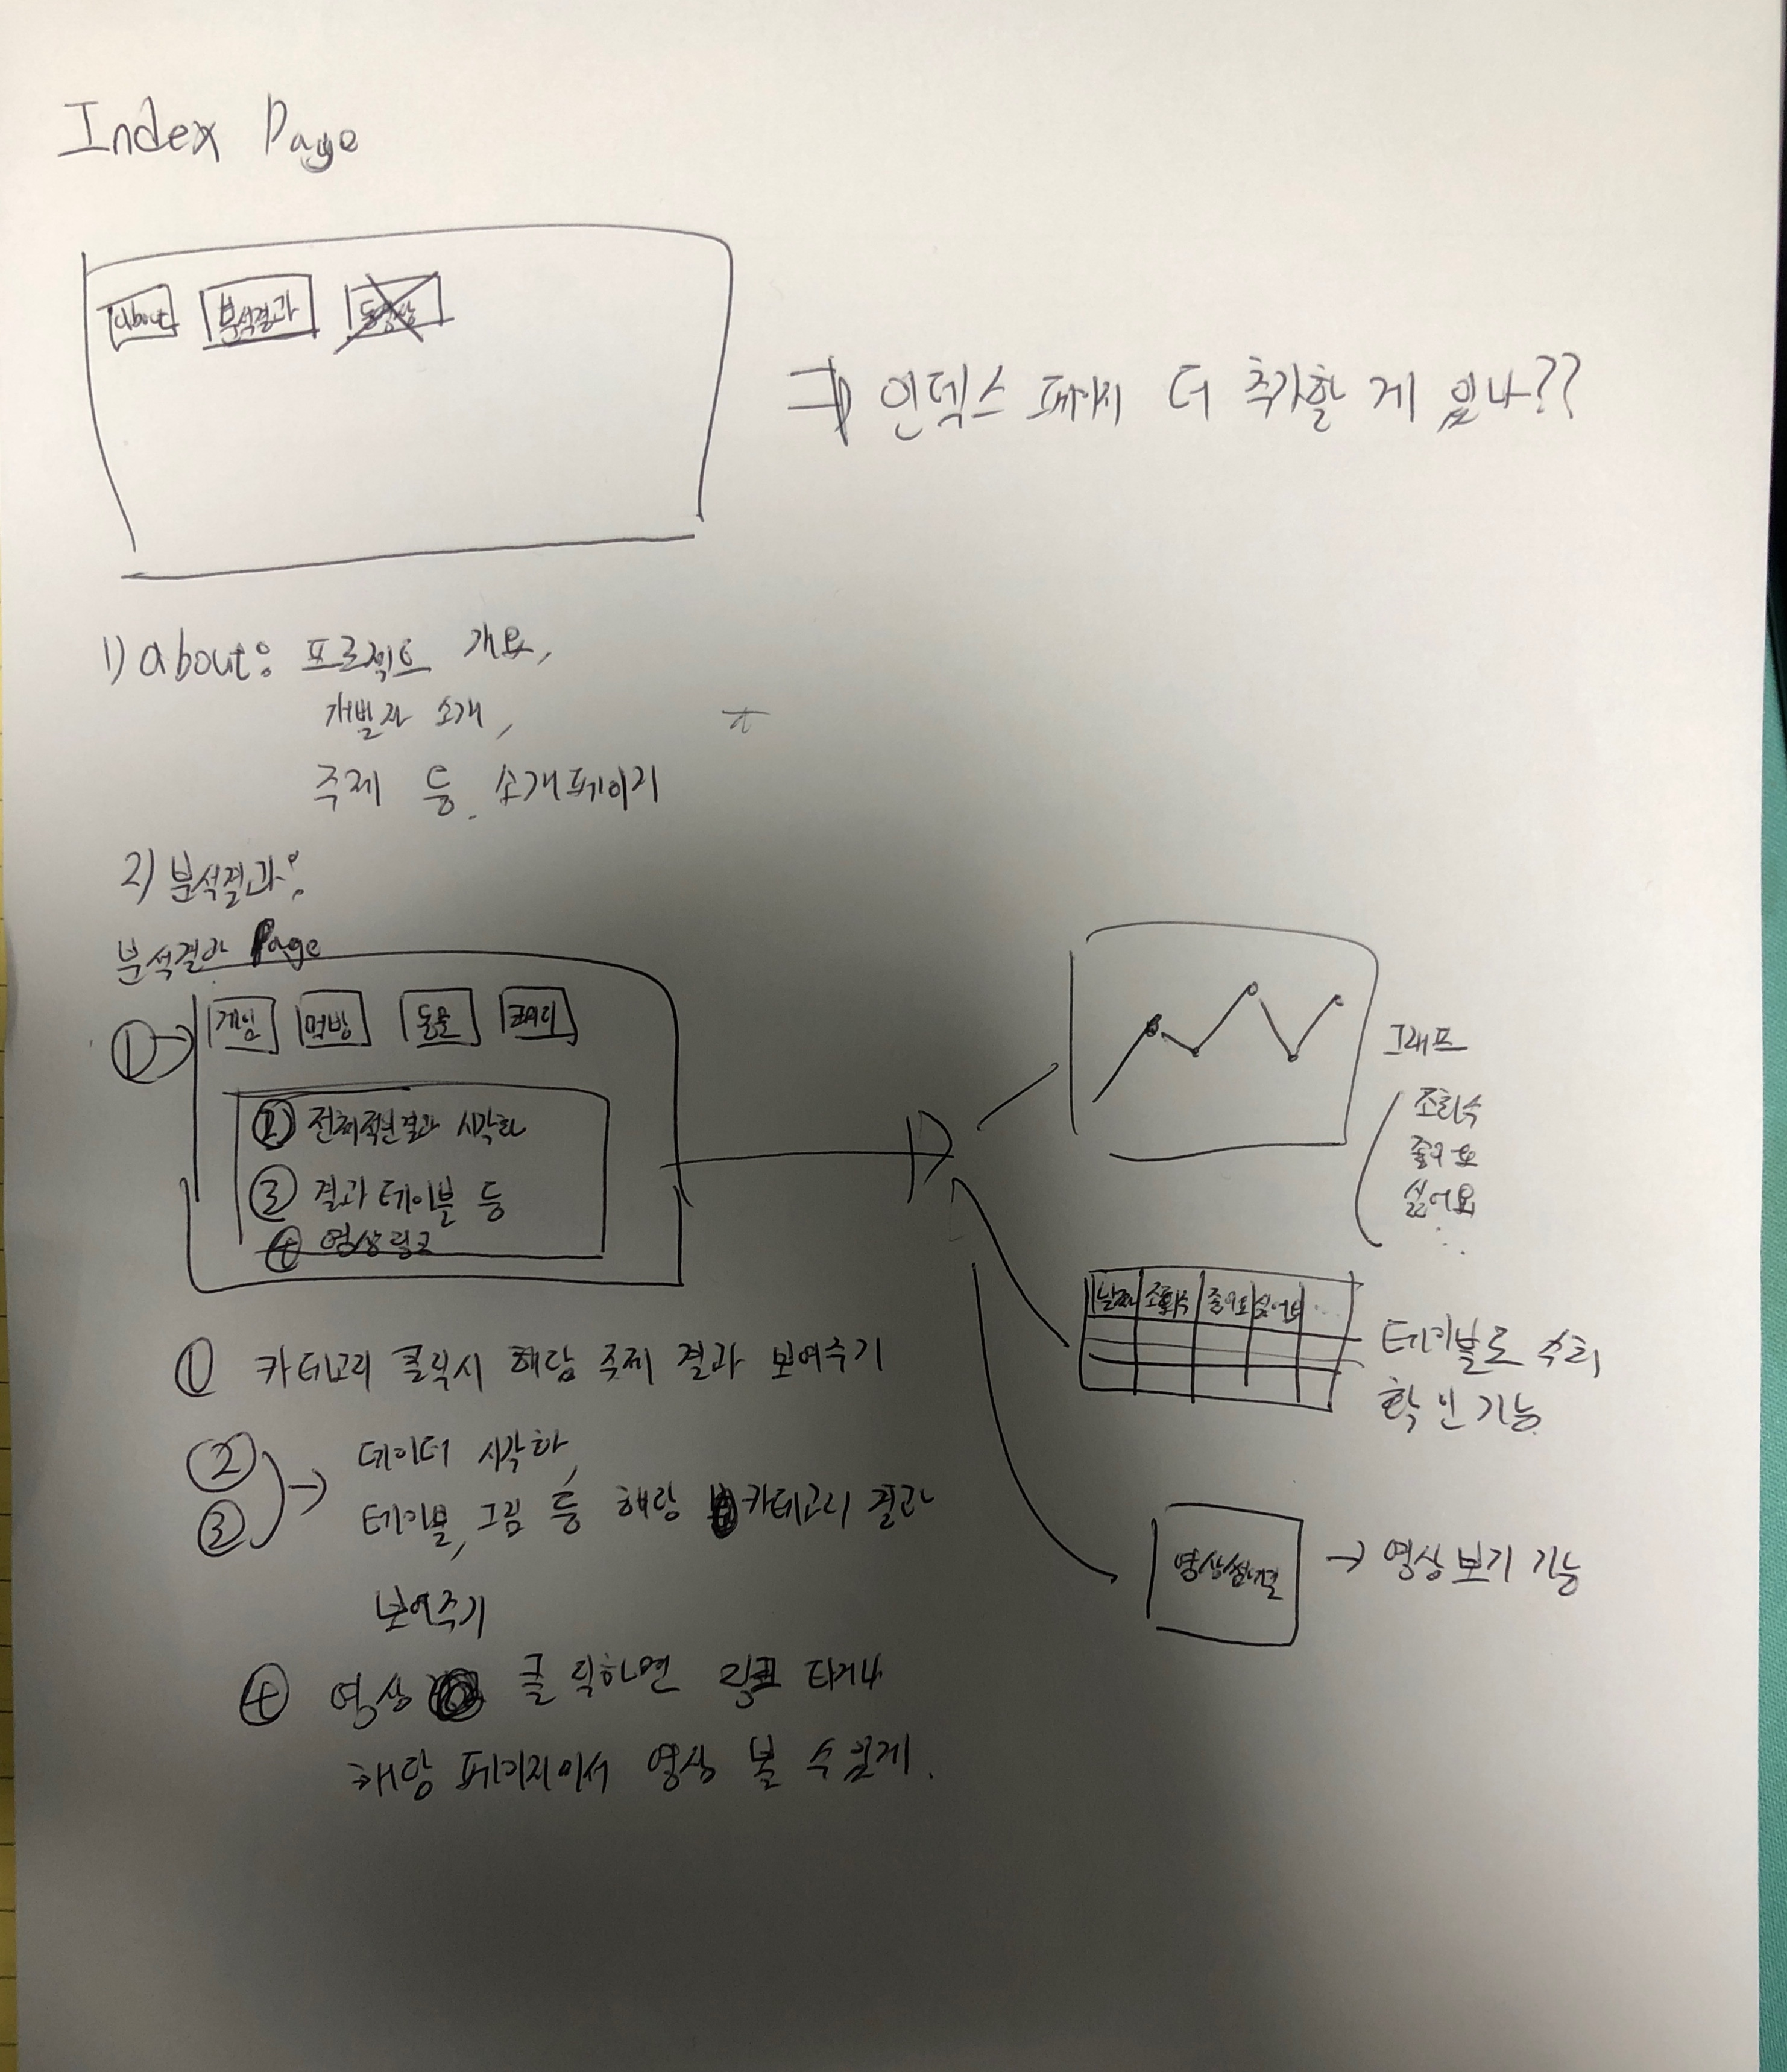 Index Page
about 분석결과 동영상
⇒ 인덱스 페이지 더 추가할 게 있나??
1) about: 프로젝트 개요,
개발자 소개,
주제 등 소개페이지
2) 분석결과:
분석결과 Page
①→ 게임 먹방 동물 코미디
② 전체적인 결과 시각화
③ 결과 테이블 등
④ 영상링크
그래프
조회수
좋아요
싫어요
날짜 조회수 좋아요 싫어요 ...
테이블로 수치
확인 기능
① 카테고리 클릭시 해당 주제 결과 보여주기
②
③ → 데이터 시각화,
테이블, 그림 등 해당 카테고리 결과
보여주기
영상썸네일 → 영상 보기 기능
④ 영상 클릭하면 링크 타거나
해당 페이지에서 영상 볼 수 있게.